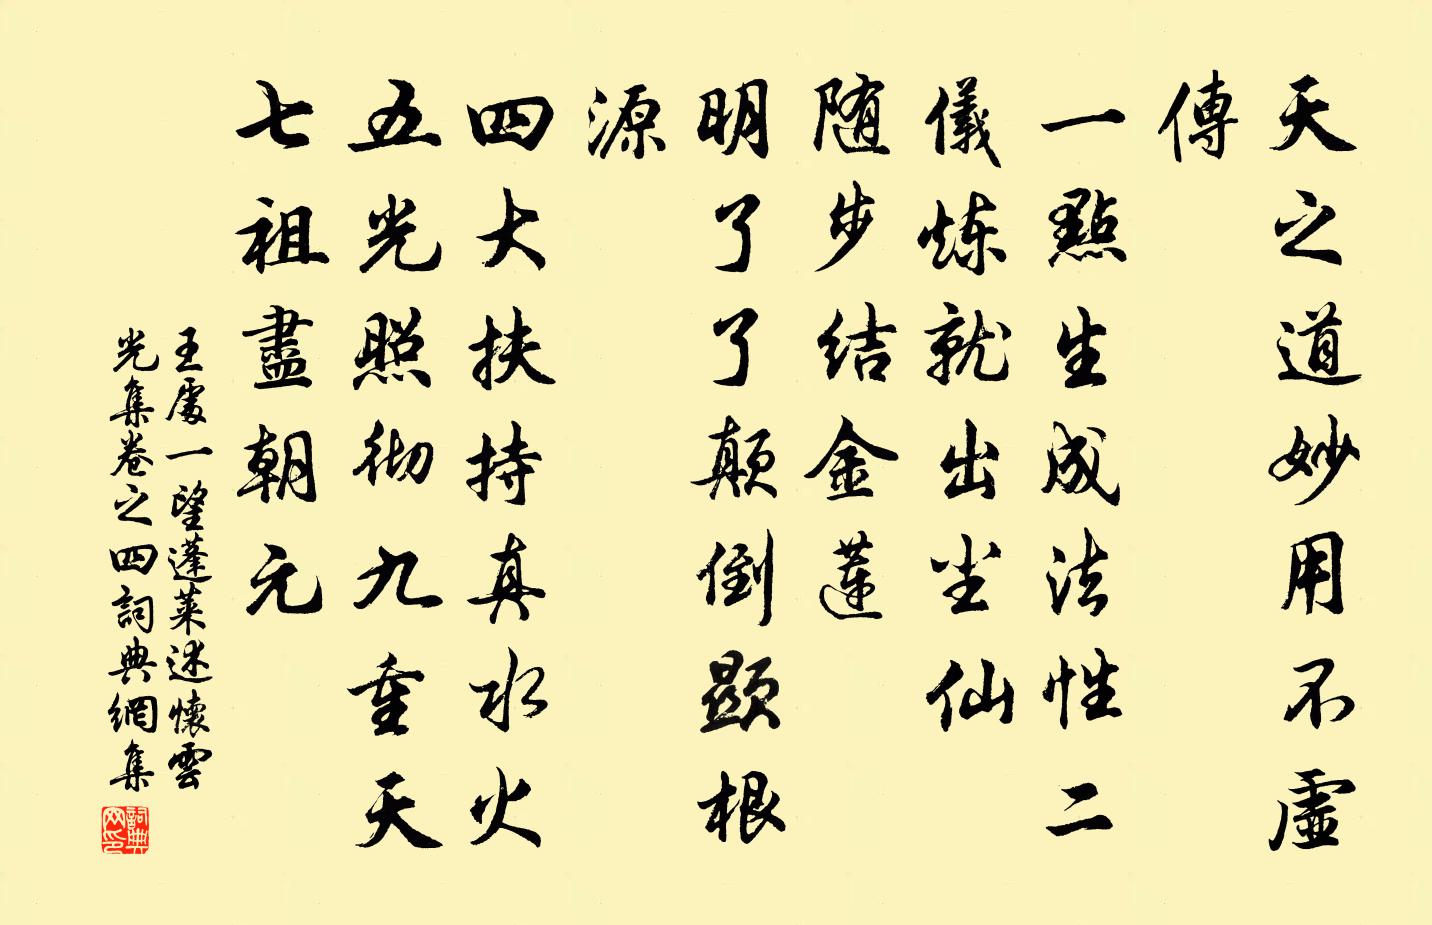 天之道妙用不虛
傳
一點生成法性二
儀炼就出尘仙
随步结金蓮
明了了颠倒顯根
源
四大扶持真水火
五光照彻九重天
七祖盡朝元
王處一望蓬莱述懷雲
光集卷之四詞典網集
詞典
网印